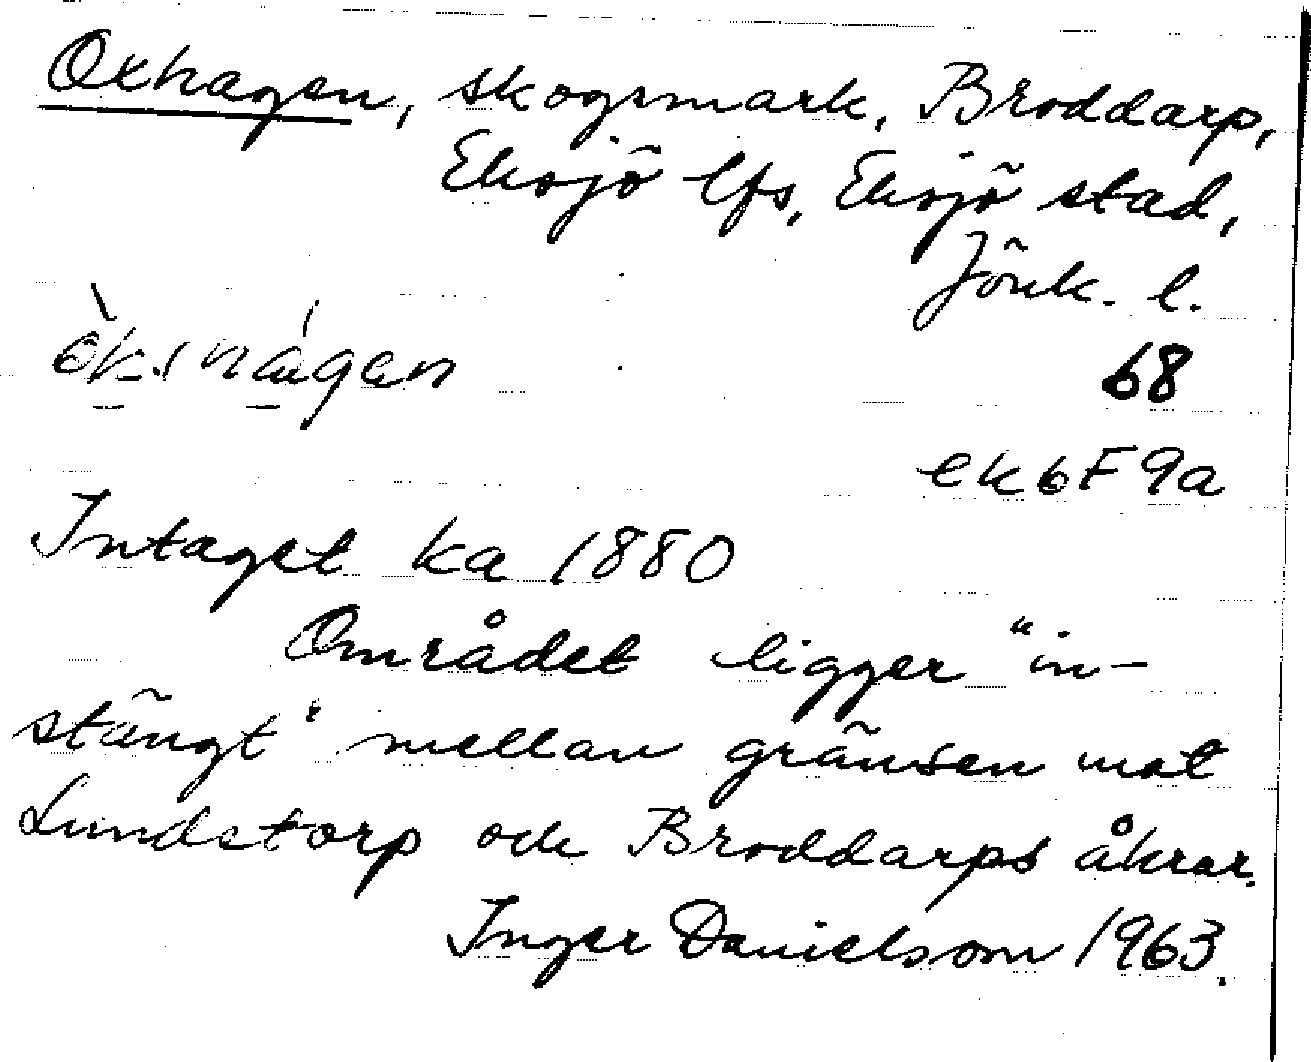 Oxhagen, skogsmark, Broddarp,
Eksjö lfs, Eksjö stad,
Jönk. l.
68
ek 6F 9a
Intaget ka 1880
Området ligger "in-
stängt" mellan gränsen mot
Lundstorp och Broddarps åkrar.
Inger Danielsson 1963.